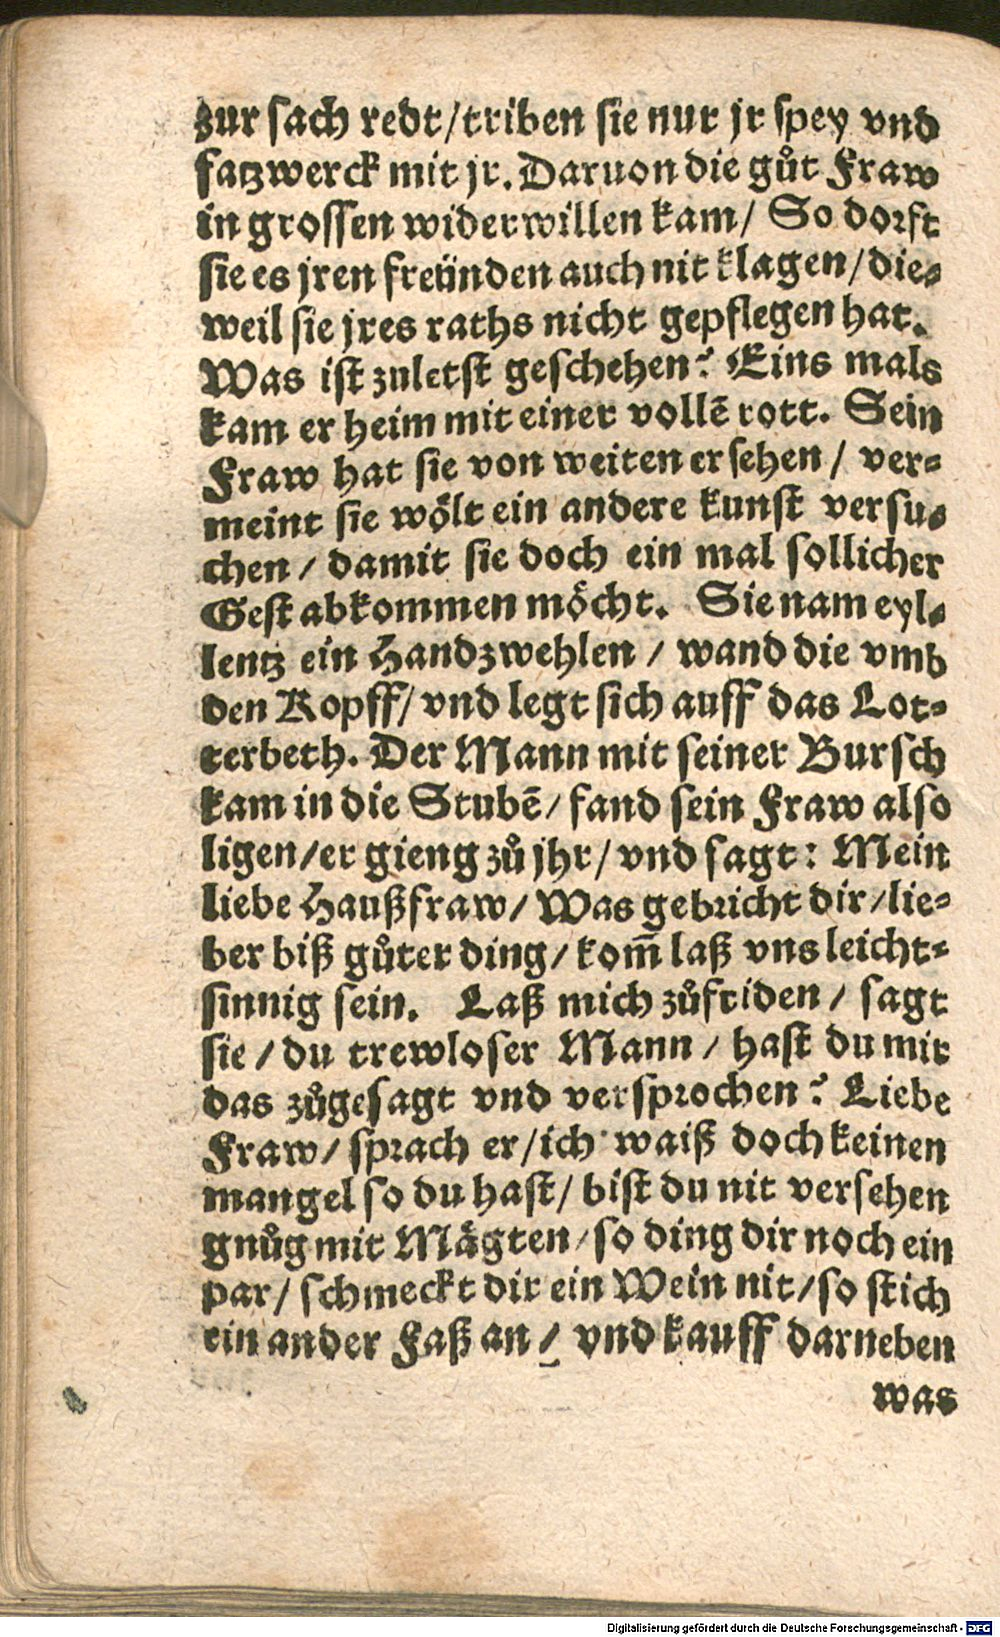 zur sach redt/triben sie nur jr spey vnd
fatzwerck mit jr. Daruon die gůt Fraw
in grossen widerwillen kam/ So dorft
sie es jren freünden auch nit klagen/die⸗
weil sie jres raths nicht gepflegen hat.
Was ist zuletst geschehen? Eins mals
kam er heim mit einer vollē rott. Sein
Fraw hat sie von weiten ersehen/ ver⸗
meint sie wölt ein andere kunst versu⸗
chen/ damit sie doch ein mal sollicher
Gest abkommen möcht. Sie nam eyl⸗
lentz ein Handzwehlen/ wand die vmb
den Kopff/ vnd legt sich auff das Lot⸗
terbeth. Der Mann mit seiner Bursch
kam in die Stubē/ fand sein Fraw also
ligen/er gieng zů jhr/ vnd sagt: Mein
liebe Haußfraw/ Was gebricht dir/lie⸗
ber biß gůter ding/ kom̄ laß vns leicht⸗
sinnig sein. Laß mich zůfriden/ sagt
sie/ du trewloser Mann/ hast du mir
das zůgesagt vnd versprochen? Liebe
Fraw/ sprach er/ich waiß doch keinen
mangel so du hast/ bist du nit versehen
gnůg mit Mägten/so ding dir noch ein
par/ schmeckt dir ein Wein nit/so stich
ein ander Faß an/ vnd kauff darneben
was
Digitalisierung gefördert durch die Deutsche Forschungsgemeinschaft - DFG